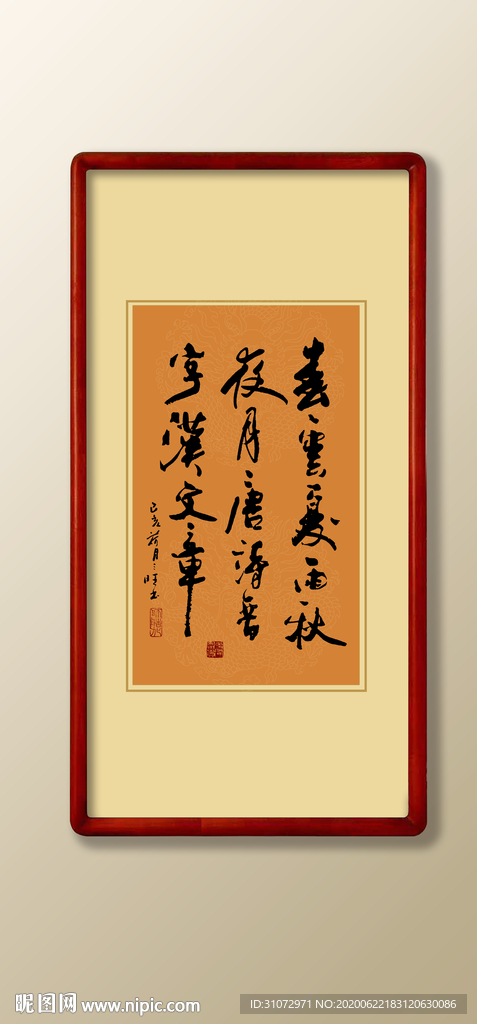 春雲夏雨秋
夜月唐詩晉
字漢文章
己亥荷月
昵图网 www.nipic.com
ID:31072971 NO:20200622183120630086